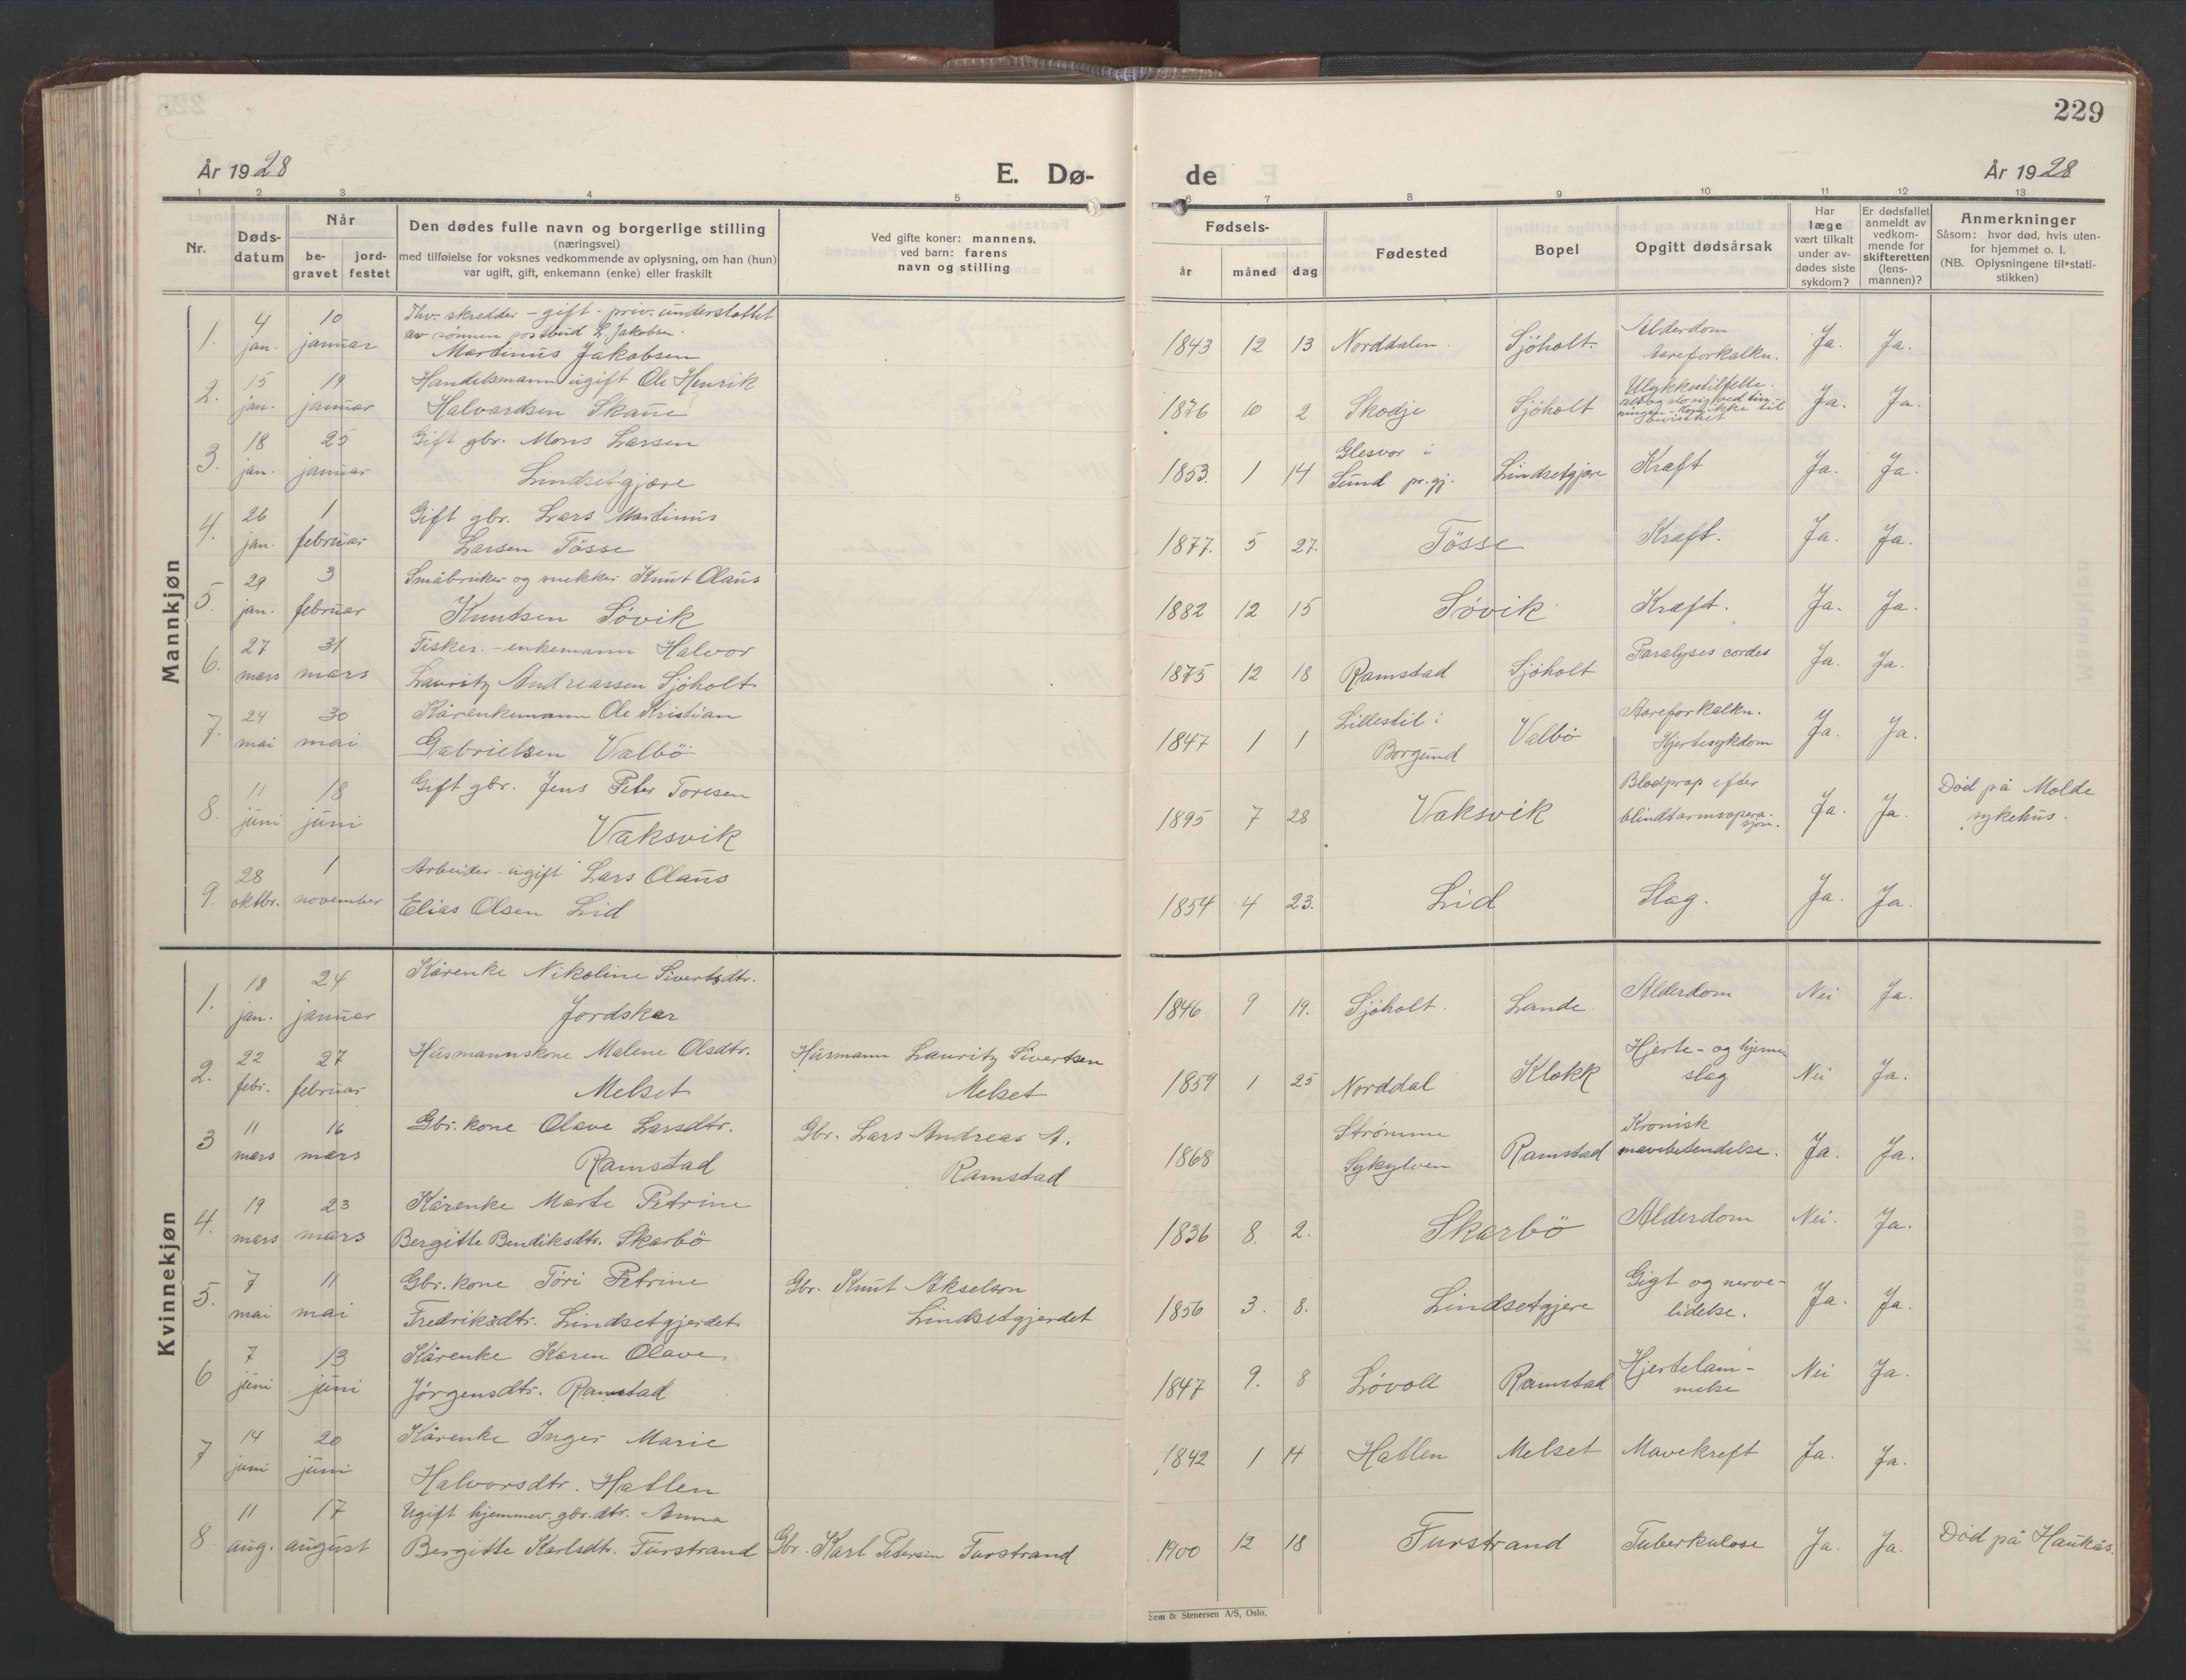 229
År 1928
E. Dø-
de
År 1928
1 2 3 4 5 6 7 8 9 10 11 12 13
Nr.
Døds-
datum
Når
be-
gravet
jord-
festet
Den dødes fulle navn og borgerlige stilling
(næringsvei)
med tilføielse for voksnes vedkommende av oplysning, om han (hun)
var ugift, gift, enkemann (enke) eller fraskilt
Ved gifte koner: mannens,
ved barn: farens
navn og stilling
Fødsels-
år måned dag
Fødested
Bopel
Opgitt dødsårsak
Har
læge
vært tilkalt
under av-
dødes siste
sykdom?
Er dødsfallet
anmeldt av
vedkom-
mende for
skifteretten
(lens-
mannen)?
Anmerkninger
Såsom: hvor død, hvis uten-
for hjemmet o. l.
(NB. Oplysningene til stati-
stikken)
Mannkjøn
1. 4 jan. 10 januar
Fhv. skredder - gift - priv. understøttet
av sønnen postbud L. Jakobsen.
Martinus Jakobsen
1843 12 13 Norddalen. Sjöholt. Alderdom
Aareforkalkn. Ja. Ja.
2. 15 jan. 19 januar
Handelsmann ugift Ole Henrik
Halvardsen Skaue
1876 10 2 Skodje Sjöholt Ulykkestilfelle.
ikke til
bevissthet Ja. Ja.
3. 18 jan. 25 januar
Gift gbr. Mons Larsen
Lindsetgjære
1853. 1 14 Glesvor i
Sund pr.gj. Lindsetgjære Kræft Ja. Ja.
4. 26 jan. 1 februar
Gift gbr. Lars Martinus
Larsen Tösse
1877. 5 27. Tösse Kræft. Ja. Ja.
5. 29 jan. 3 februar
Småbruker og snekker Knut Olaus
Knutsen Søvik
1882 12 15 Søvik Kræft. Ja. Ja.
6. 27 mars 31 mars
Fisker. - enkemann Halvor
Lauritz Andreassen Sjöholt
1875 12 18 Ramstad Sjöholt Paralyses cordes Ja. Ja.
7. 24 mai 30 mai
Kårenkemann Ole Kristian
Gabrielsen Valbö
1847 1 1 Lillestil i
Borgund Valbö Aareforkalkn.
Hjertesykdom Ja. Ja.
8. 11 juni 18 juni
Gift gbr. Jens Peter Toresen
Vaksvik
1895 7 28 Vaksvik Blodprop efter
blindtarmsopera-
sjon. Ja. Ja. Død på Molde
sykehus.
9. 28 oktbr. 1 november
Arbeider - ugift Lars Olaus
Elias Olsen Lid
1854 4 23. Lid Slag. Ja. Ja.
Kvinnekjøn
1. 18 jan. 24 januar
Kårenke Nikoline Sivertsdtr.
Jordskar
1846 9 19. Sjöholt. Lande Alderdom Nei Ja.
2. 22 febr. 27 februar
Husmannskone Malene Olsdtr.
Melset
Husmann Lauritz Sivertsen
Melset
1859 1 25 Norddal Klokk Hjerte- og hjerne
slag Nei Ja.
3 11 mars 16 mars
Gbr. kone Olave Larsdtr.
Ramstad
Gbr. Lars Andreas A.
Ramstad
1868 Strømme
Sykylven Ramstad Kronisk
mavebetendelse. Ja. Ja.
4. 19 mars 23 mars
Kårenke Marte Petrine
Bergitte Bendiksdtr. Skarbö
1836 8. 2. Skarbö Alderdom Nei. Ja.
5. 7 mai 11 mai
Gbr. kone Töri Petrine
Fredriksdtr. Lindsetgjerdet
Gbr. Knut Akselson
Lindsetgjerdet
1856 3. 8. Lindsetgjere Gigt og nerve-
lidelse. Ja. Ja.
6 7 juni 13 juni
Kårenke Karen Olave
Jørgensdtr. Ramstad
1847 9. 8 Løvoll Ramstad Hjertelam-
melse Nei Ja.
7 14 juni 20 juni
Kårenke Inger Marie
Halvorsdtr. Hatlen
1842 1 14 Hatlen Melset Mavekreft Ja. Ja.
8. 11 aug. 17 august
Ugift hjemmev. gbr. dtr. Anna
Bergitte Karlsdtr. Furstrand
Gbr. Karl Petersen Furstrand
1900 12 18 Furstrand Tuberkulose Ja. Ja. Død på Haukås.
Sem & Stenersen A/S, Oslo.